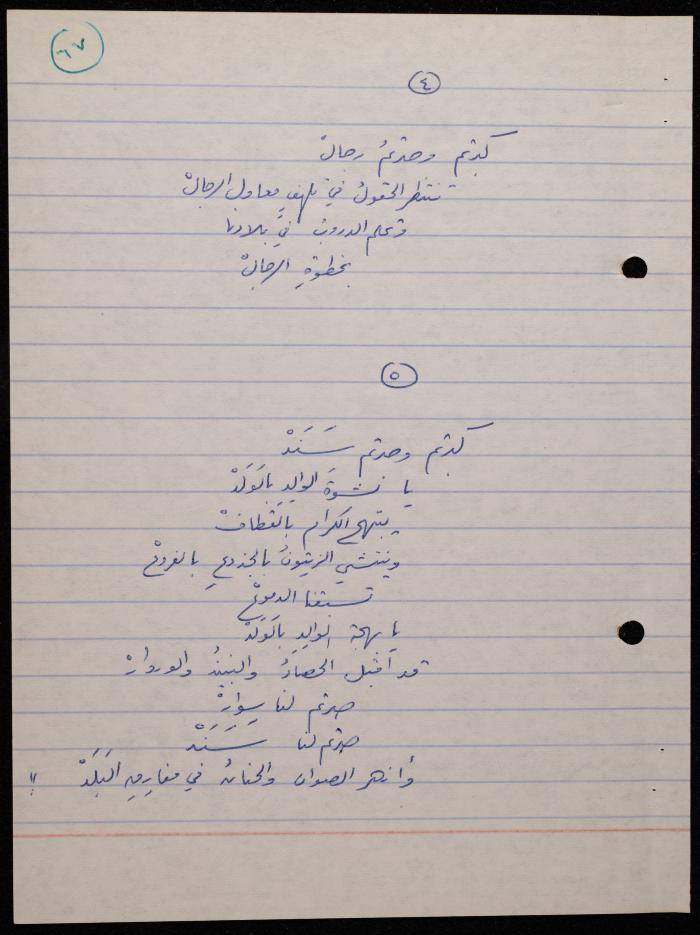 ٦٧
٤
كبرتم وصرتمُ رجالْ
تنتظر الحقولُ في لهفٍ معاول الرجالْ
وتحلم الدروبُ في بلادنا
بخطوةِ الرجالْ
٥
كبرتم وصرتم سَنَدْ
يا نشوةَ الوالدِ بالوَلَدْ
يبتهج الكرام بالقطافْ
وينتشي الزيتونُ بالجذوعِ بالفروعْ
تسبقنا الدموعْ
يا بهجة الوالدِ بالوَلَدْ
قد أقبل الحصادُ والنبيذُ والوردارْ
صرتم لنا سِوارْ
صرتم لنا سَنَدْ
وأزهر الصوان والحنانُ في مفارِقِ البَلَدْ !!